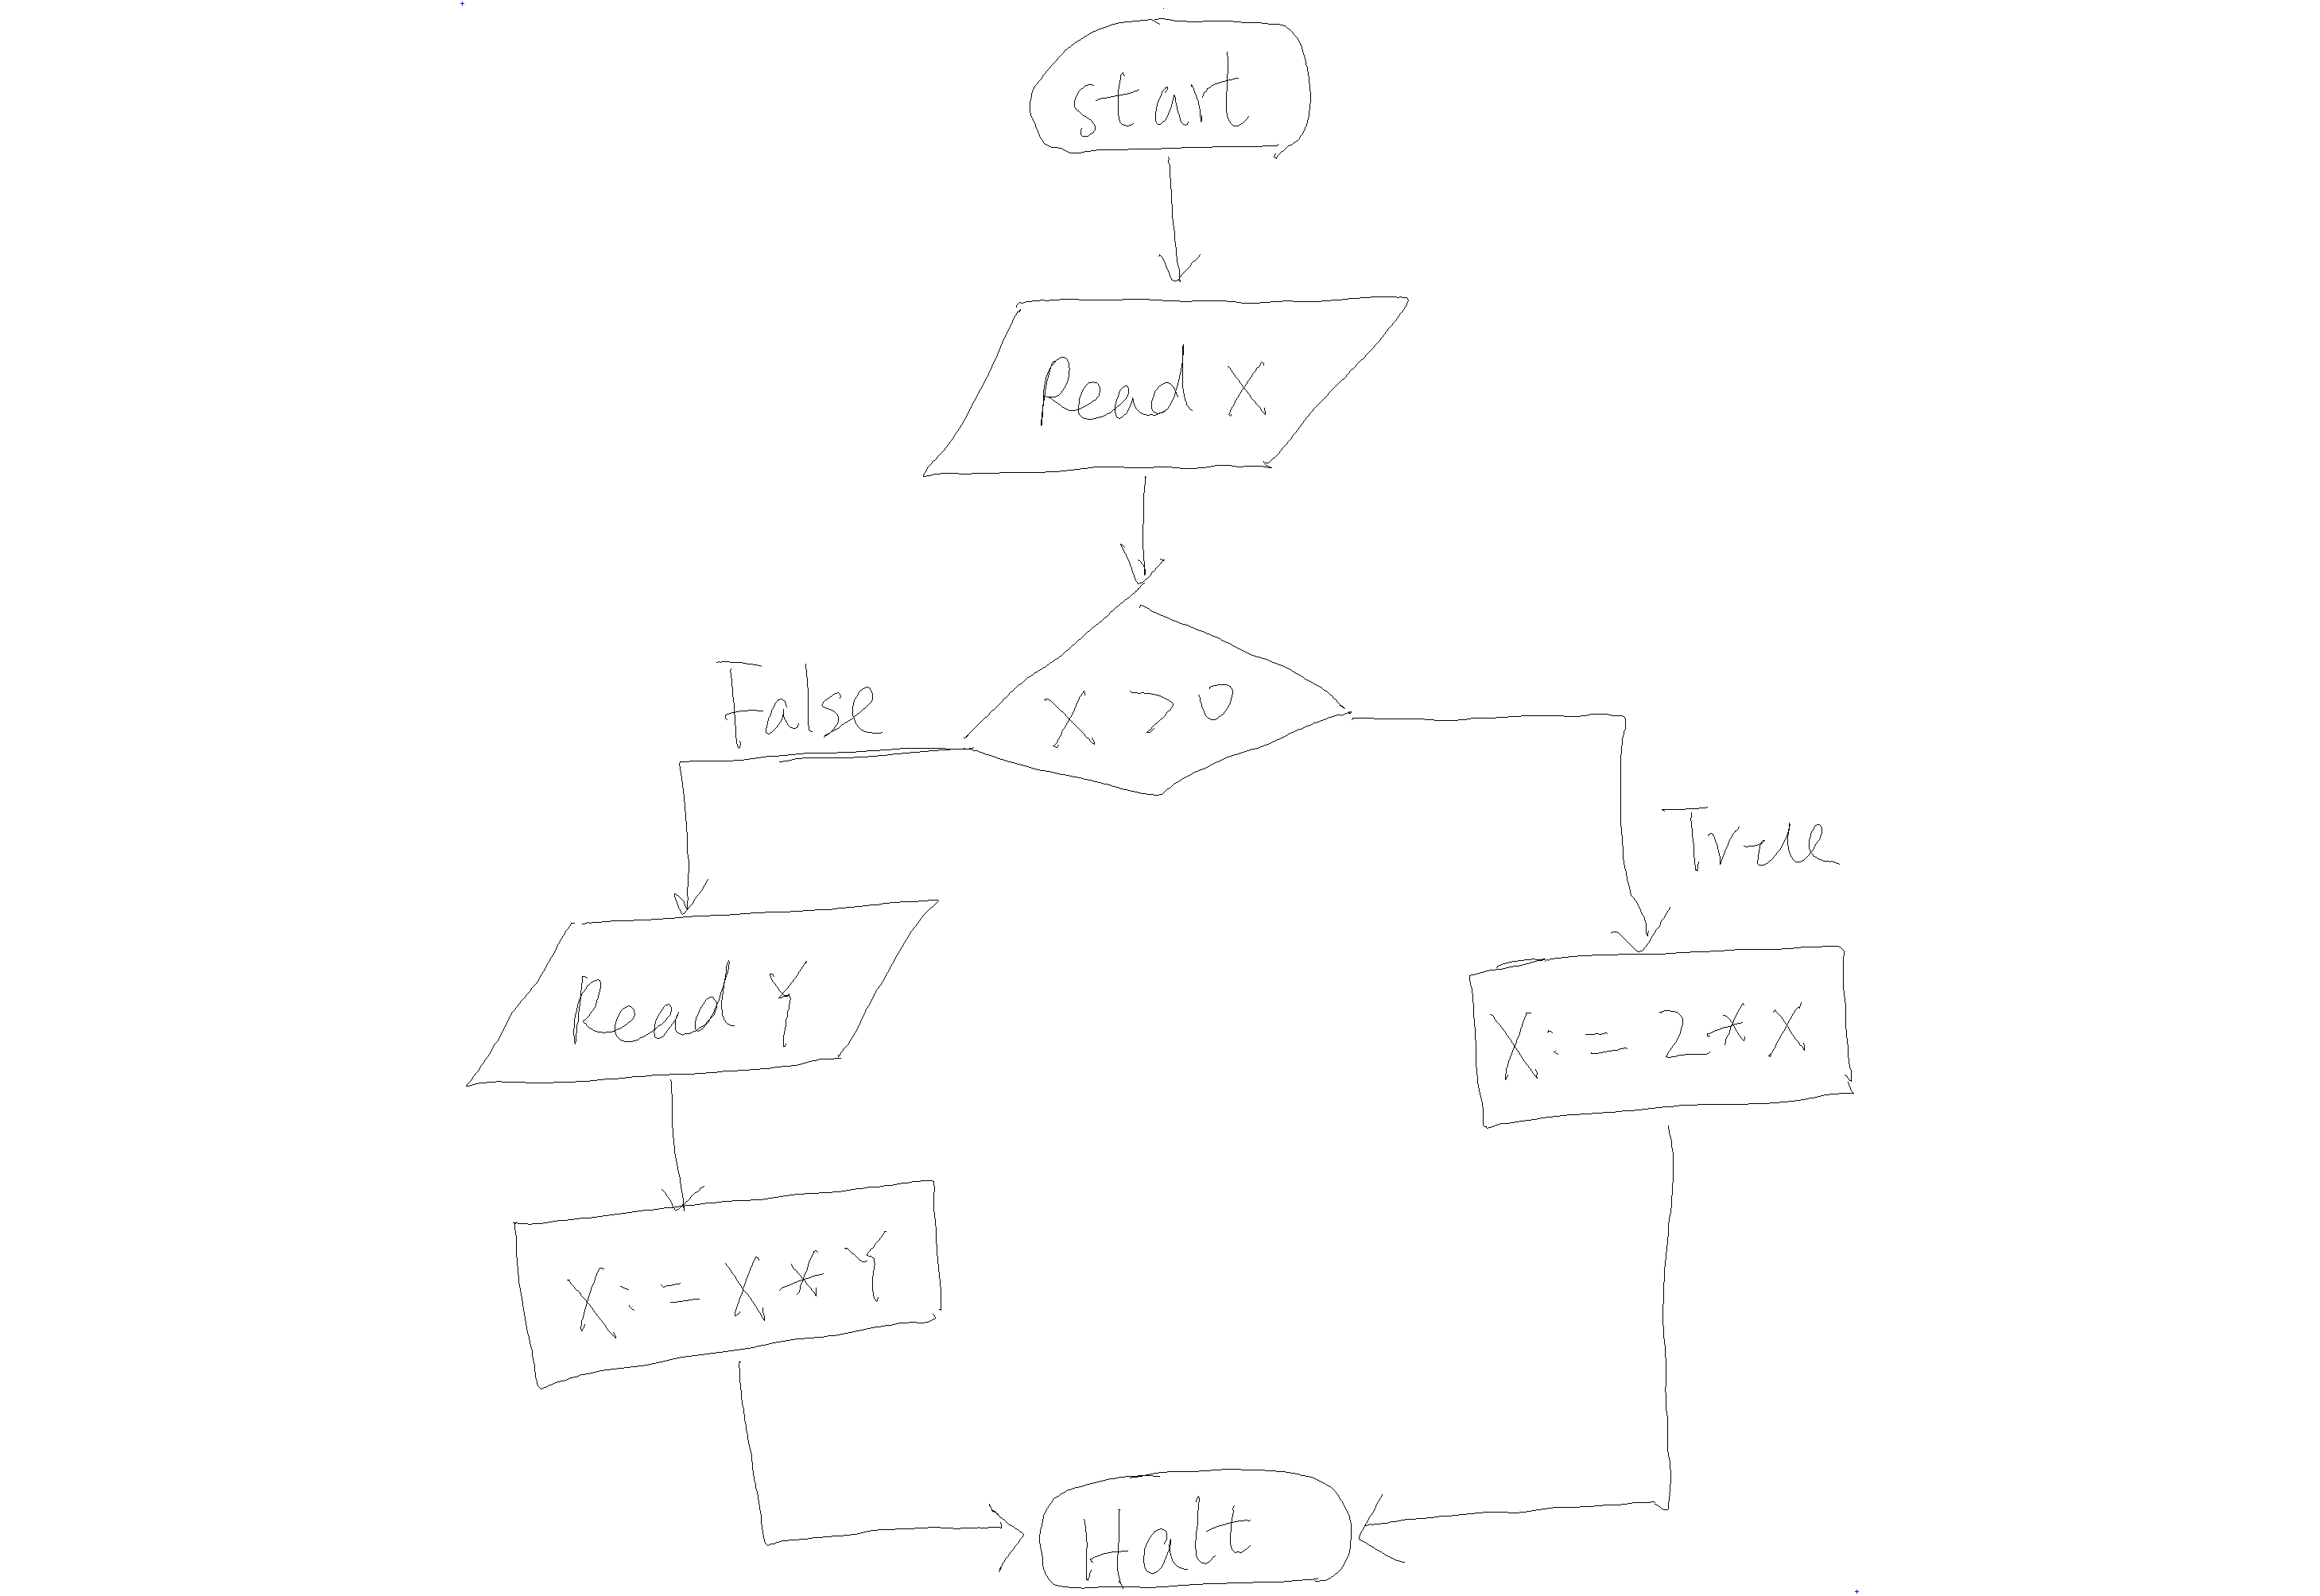 start
Read X
X > 0
False
True
Read Y
X := 2 * X
X := X * Y
Halt